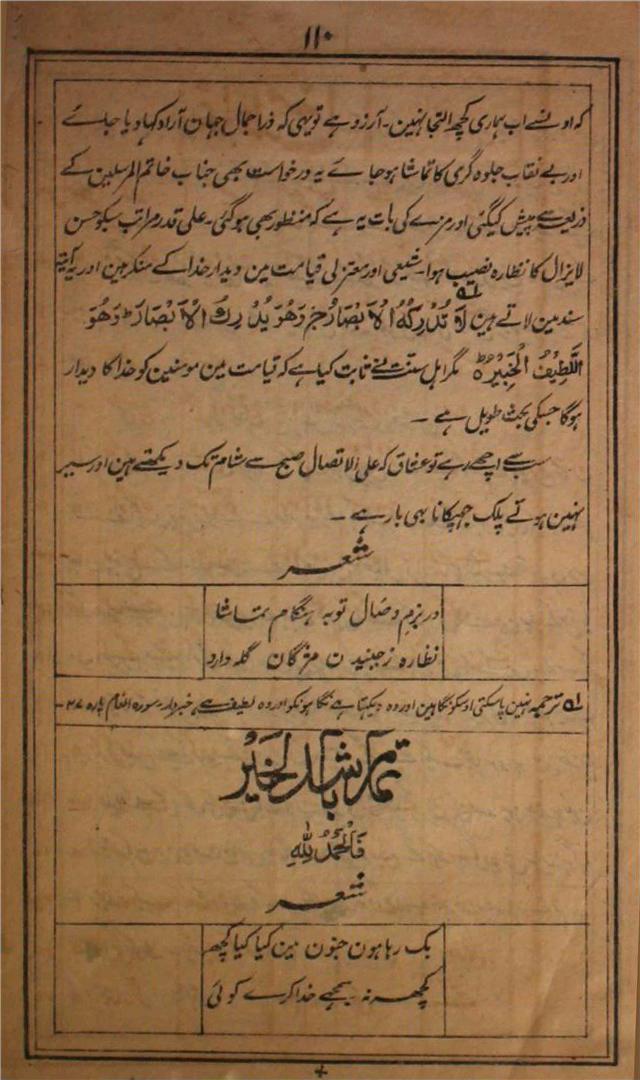 ۱۱۰
کہ اونسے اب ہماری کچھ التجا نہین۔ آرزو ہے تو یہی کہ ذرا جمال جہان آرا دکہا دیا جائے
اور بے نقاب جلوہ گری کا تماشا ہو جائے یہ درخواست بھی جناب خاتم المرسلین کے
ذریعہ سے پیش کیگئی اور مزے کی بات یہ ہے کہ منظور بھی ہو گئی۔ علی قدر مراتب سبکو حسن
لایزال کا نظارہ نصیب ہوا۔ شیعی اور معتزلی قیامت مین دیدار خدا کے منکر ہین اور یہ آیۃ
سند مین لاتے ہین لَا تُدْرِكُهُ الْاَبْصَارُ وَهُوَ يُدْرِكُ الْاَبْصَارَ وَهُوَ
اللَّطِيْفُ الْخَبِيْرُ مگر اہل سنت نے ثابت کیا ہے کہ قیامت مین مومنین کو خدا کا دیدار
ہوگا جسکی بحث طویل ہے ۔
سب سے اچھے رہے تو عشاق کہ علی الاتصال صبح سے شام تک دیکھتے ہین اور سیر
نہین ہوتے پلک جھپکانا بھی بار ہے ۔
شعر
در بزم وصال تو بہ ہنگام تماشا
نظارہ ز جنبیدن مژگان گلہ دارد
لہ ترجمہ نہین پاسکتی اوسکو نگاہین اور وہ دیکہتا ہے نگاہونکو اور وہ لطیف ہے خبردار۔ سورہ انعام پارہ ۲۷۔
تمام باشد الخیر
فَالْحَمْدُ لِلّٰهِ
شعر
بک رہا ہون جنون مین کیا کیا کچھ
کچھ نہ سمجھے خدا کرے کوئی